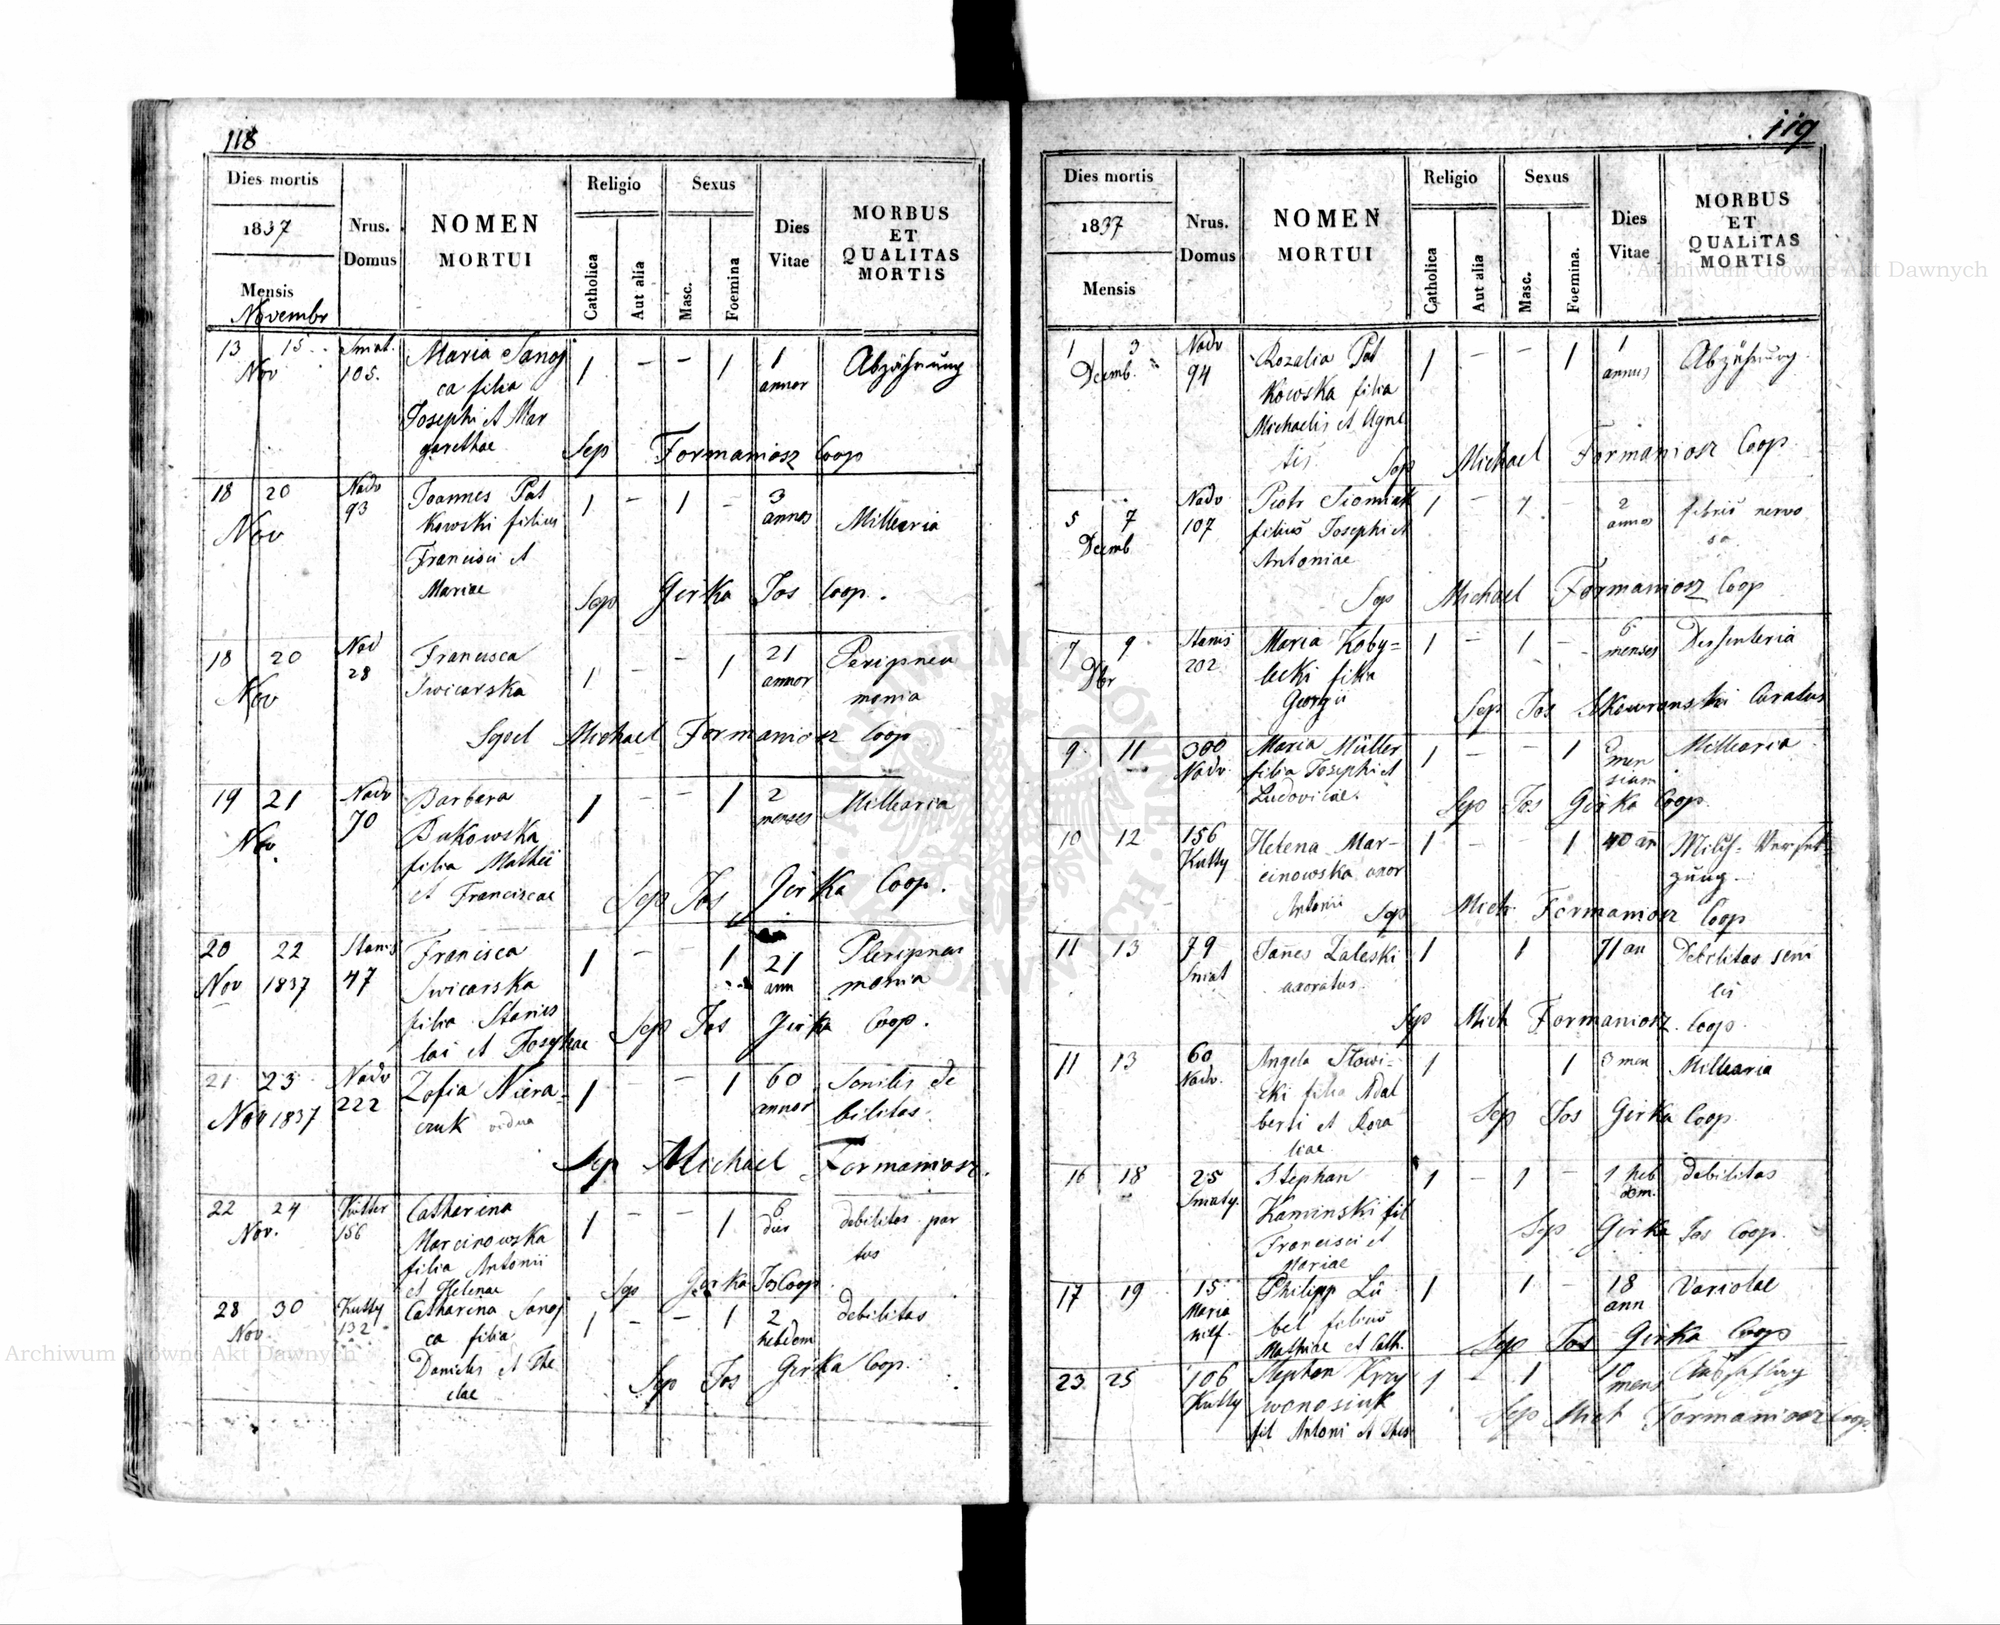 118
Dies mortis
1837
Mensis
Novembr
Nrus.
Domus
NOMEN
MORTUI
Religio
Catholica
Aut alia
Sexus
Masc.
Foemina
Dies
Vitae
MORBUS
ET
QUALITAS
MORTIS
13 15 Sniat. Maria Sanoj 1 – – 1 1 Abzährung
Nov 105. ca filia annor
Josephi et Mar
garethae Sep Formaniosz Coop
18 20 Nadv Joannes Pat 1 – 1 – 3 Milliaria
Nov 93 kowski filius annos
Francisci et
Mariae Sep Girka Jos Coop.
18 20 Nad Francisca 1 – – 1 21 Peripneu
Nov 28 Swicarska annor monia
Sepel Michael Formaniosz Coop
19 21 Nadv Barbara 1 – – 1 2 Milliaria
Nov. 70 Bukowska menses
filia Mathei
et Franciscae Sep Jos Girka Coop.
20 22 Stanis Francisca 1 – – 1 21 Pleripneu
Nov 1837 47 Swicarska ann monia
filia Stanis Sep Jos Girka Coop.
lai et Josephae
21 23 Nadv Zofia Niera- 1 – – 1 60 Senilis de
Nov 1837 222 czuk vidua annor bilitas.
Sep Michael Formaniosz.
22 24 Kutter Catharina 1 – – 1 6 debilitas par
Nov. 156 Marcinowska dies tus
filia Antonii
et Helenae Sep Girka Jos Coop
28 30 Kutty Catharina Sanoj 1 – – 1 2 debilitas
Nov 132 ca filia hebdom
Danielis et The Sep Jos Girka Coop.
clae
119
Dies mortis
1837
Mensis
Nrus.
Domus
NOMEN
MORTUI
Religio
Catholica
Aut alia
Sexus
Masc.
Foemina.
Dies
Vitae
MORBUS
ET
QUALITAS
MORTIS
1 3 Nadv Rozalia Pat 1 – – 1 1 Abzährung
Decemb. 94 kowska filia annus
Michaelis et Agne
tis Sep Michael Formaniosz Coop
5 7 Nadv Piotr Siomiak 1 – 1 – 2 febris nervo
Decemb 107 filius Josephi et annos sa
Antoniae
Sep Michael Formaniosz Coop
7 9 Stanis Maria Koby= 1 – 1 – 6 Dissinteria
Dbr 202 lecki filia menses
Georgii Sep Jos Skowronski Curatus
9 11 300 Maria Müller 1 – – 1 men Milliaria
Nadv. filia Josephi et sium
Ludovicae. Sep Jos Girka Coop.
10 12 156 Helena Mar- 1 – – 1 40 an Milch=Verset=
Kutty cinowska uxor zung.
Antonii Sep Mich. Formaniosz Coop
11 13 79 Janes Zaleski 1 1 71 an Debilitas seni
Sniat uxoratus. lis
Sep Mich Formaniosz. Coop.
11 13 60 Angela Słowi- 1 1 3 men Milliaria
Nadv. cki filia Adal
berti et Roza Sep Jos Girka Coop.
liae
16 18 25 Stephan 1 – 1 – 1 heb debilitas
Sniaty. Kaminski fil dom.
Francisci et Sep Girka Jos Coop.
Mariae
17 19 15 Philipp Lü 1 1 – 18 Variolae
Maria bel filius ann
hilf. Mathiae et Cath. Sep Jos Girka Coop
23 25 106 Stephan Krzy 1 – 1 10 Ausschlag
Kutty wonosiuk mens
fil Antoni et Thes Sep Mich Formaniosz Coop
Archiwum Główne Akt Dawnych
Archiwum Główne Akt Dawnych
ARCHIWUM GŁÓWNE AKT DAWNYCH